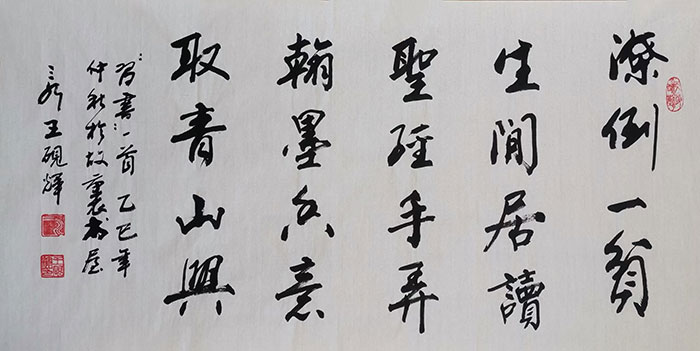 潦倒一穷
生閒居讀
聖經手弄
翰墨香意
取青山興
習書一首 乙巳年
仲秋於故裏屋
王硯輝